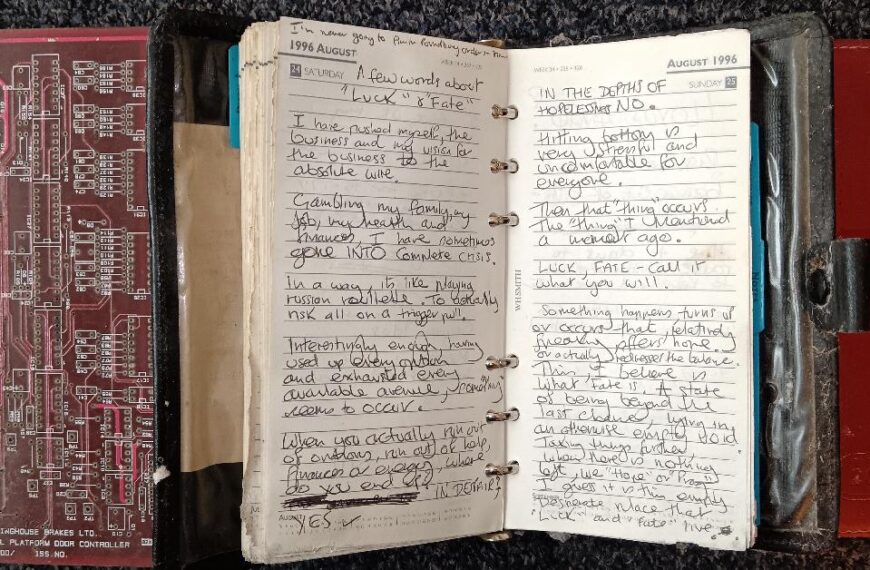 I'm never going to
1996 AUGUST
24 SATURDAY
A few words about
"LUCK" & "Fate"
I have pushed myself, the
business and my vision for
the business to the
absolute wire.
Gambling my family, my
job, my health and
finances, I have sometimes
gone INTO complete crisis.
In a way, it's like playing
russian roullette. To actually
risk all on a trigger pull.
Interestingly enough, having
used up every option
and exhausted every
available avenue, something
seems to occur.
When you actually run out
of options, run out of help,
finances or energy, where
do you end up?
IN DESPAIR?
YES ✓
AUGUST 1996
SUNDAY 25
IN THE DEPTHS OF
HOPELESSNESS NO.
Hitting bottom is
very stressful and
uncomfortable for
everyone.
Then that "thing" occurs.
The "thing" I mentioned
a moment ago.
LUCK, FATE - call it
what you will.
Something happens, turns up
or occurs that, relatively
speaking offers hope
or actually redresses the balance.
This I believe is
what fate is. A state
of being beyond the
last closure, lying in
an otherwise empty void
Taking things further,
when there is nothing
left, we "Hope" or "Pray"
I guess it is this empty
desperate place that
"Luck" and "Fate" live
WHSMITH
INGHOUSE BRAKES LTD..
L PLATFORM DOOR CONTROLLER
00/ ISS.NO.